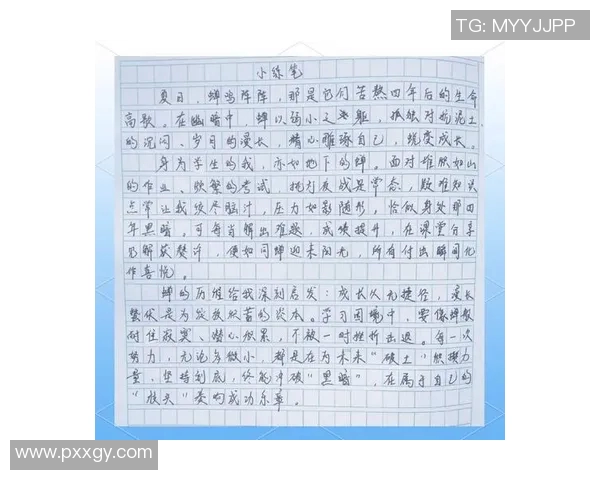 TG: MYYJJPP
小练笔
夏日，蝉鸣阵阵，那是它们苦熬四年后的生命
高歌。在幽暗中，蝉以弱小之躯，孤独对抗泥土
的沉闷、岁月的漫长，精心雕琢自己，蜕变成长。
身为学生的我，亦如地下的蝉。面对堆积如山
的作业、频繁的考试，挑灯夜战是常态，数难知识
点常让我绞尽脑汁，压力如影随形，恰似身处那四
年黑暗。可每当解出难题，成绩提升，在课堂分享
见解获赞许，便如同蝉迎来阳光，所有付出瞬间化
作喜悦。
蝉的历程给我深刻启发：成长从无捷径，漫长
蛰伏是为绽放积蓄的资本。学习困境中，要像蝉般
耐住寂寞、潜心积累，不被一时挫折击退。每一次
努力，无论多微小，都是在为未来“破土”积攒力
量，坚持到底，终能冲破“黑暗”，在属于自己的
“枝头”奏响成功乐章。
www.pxxgy.com